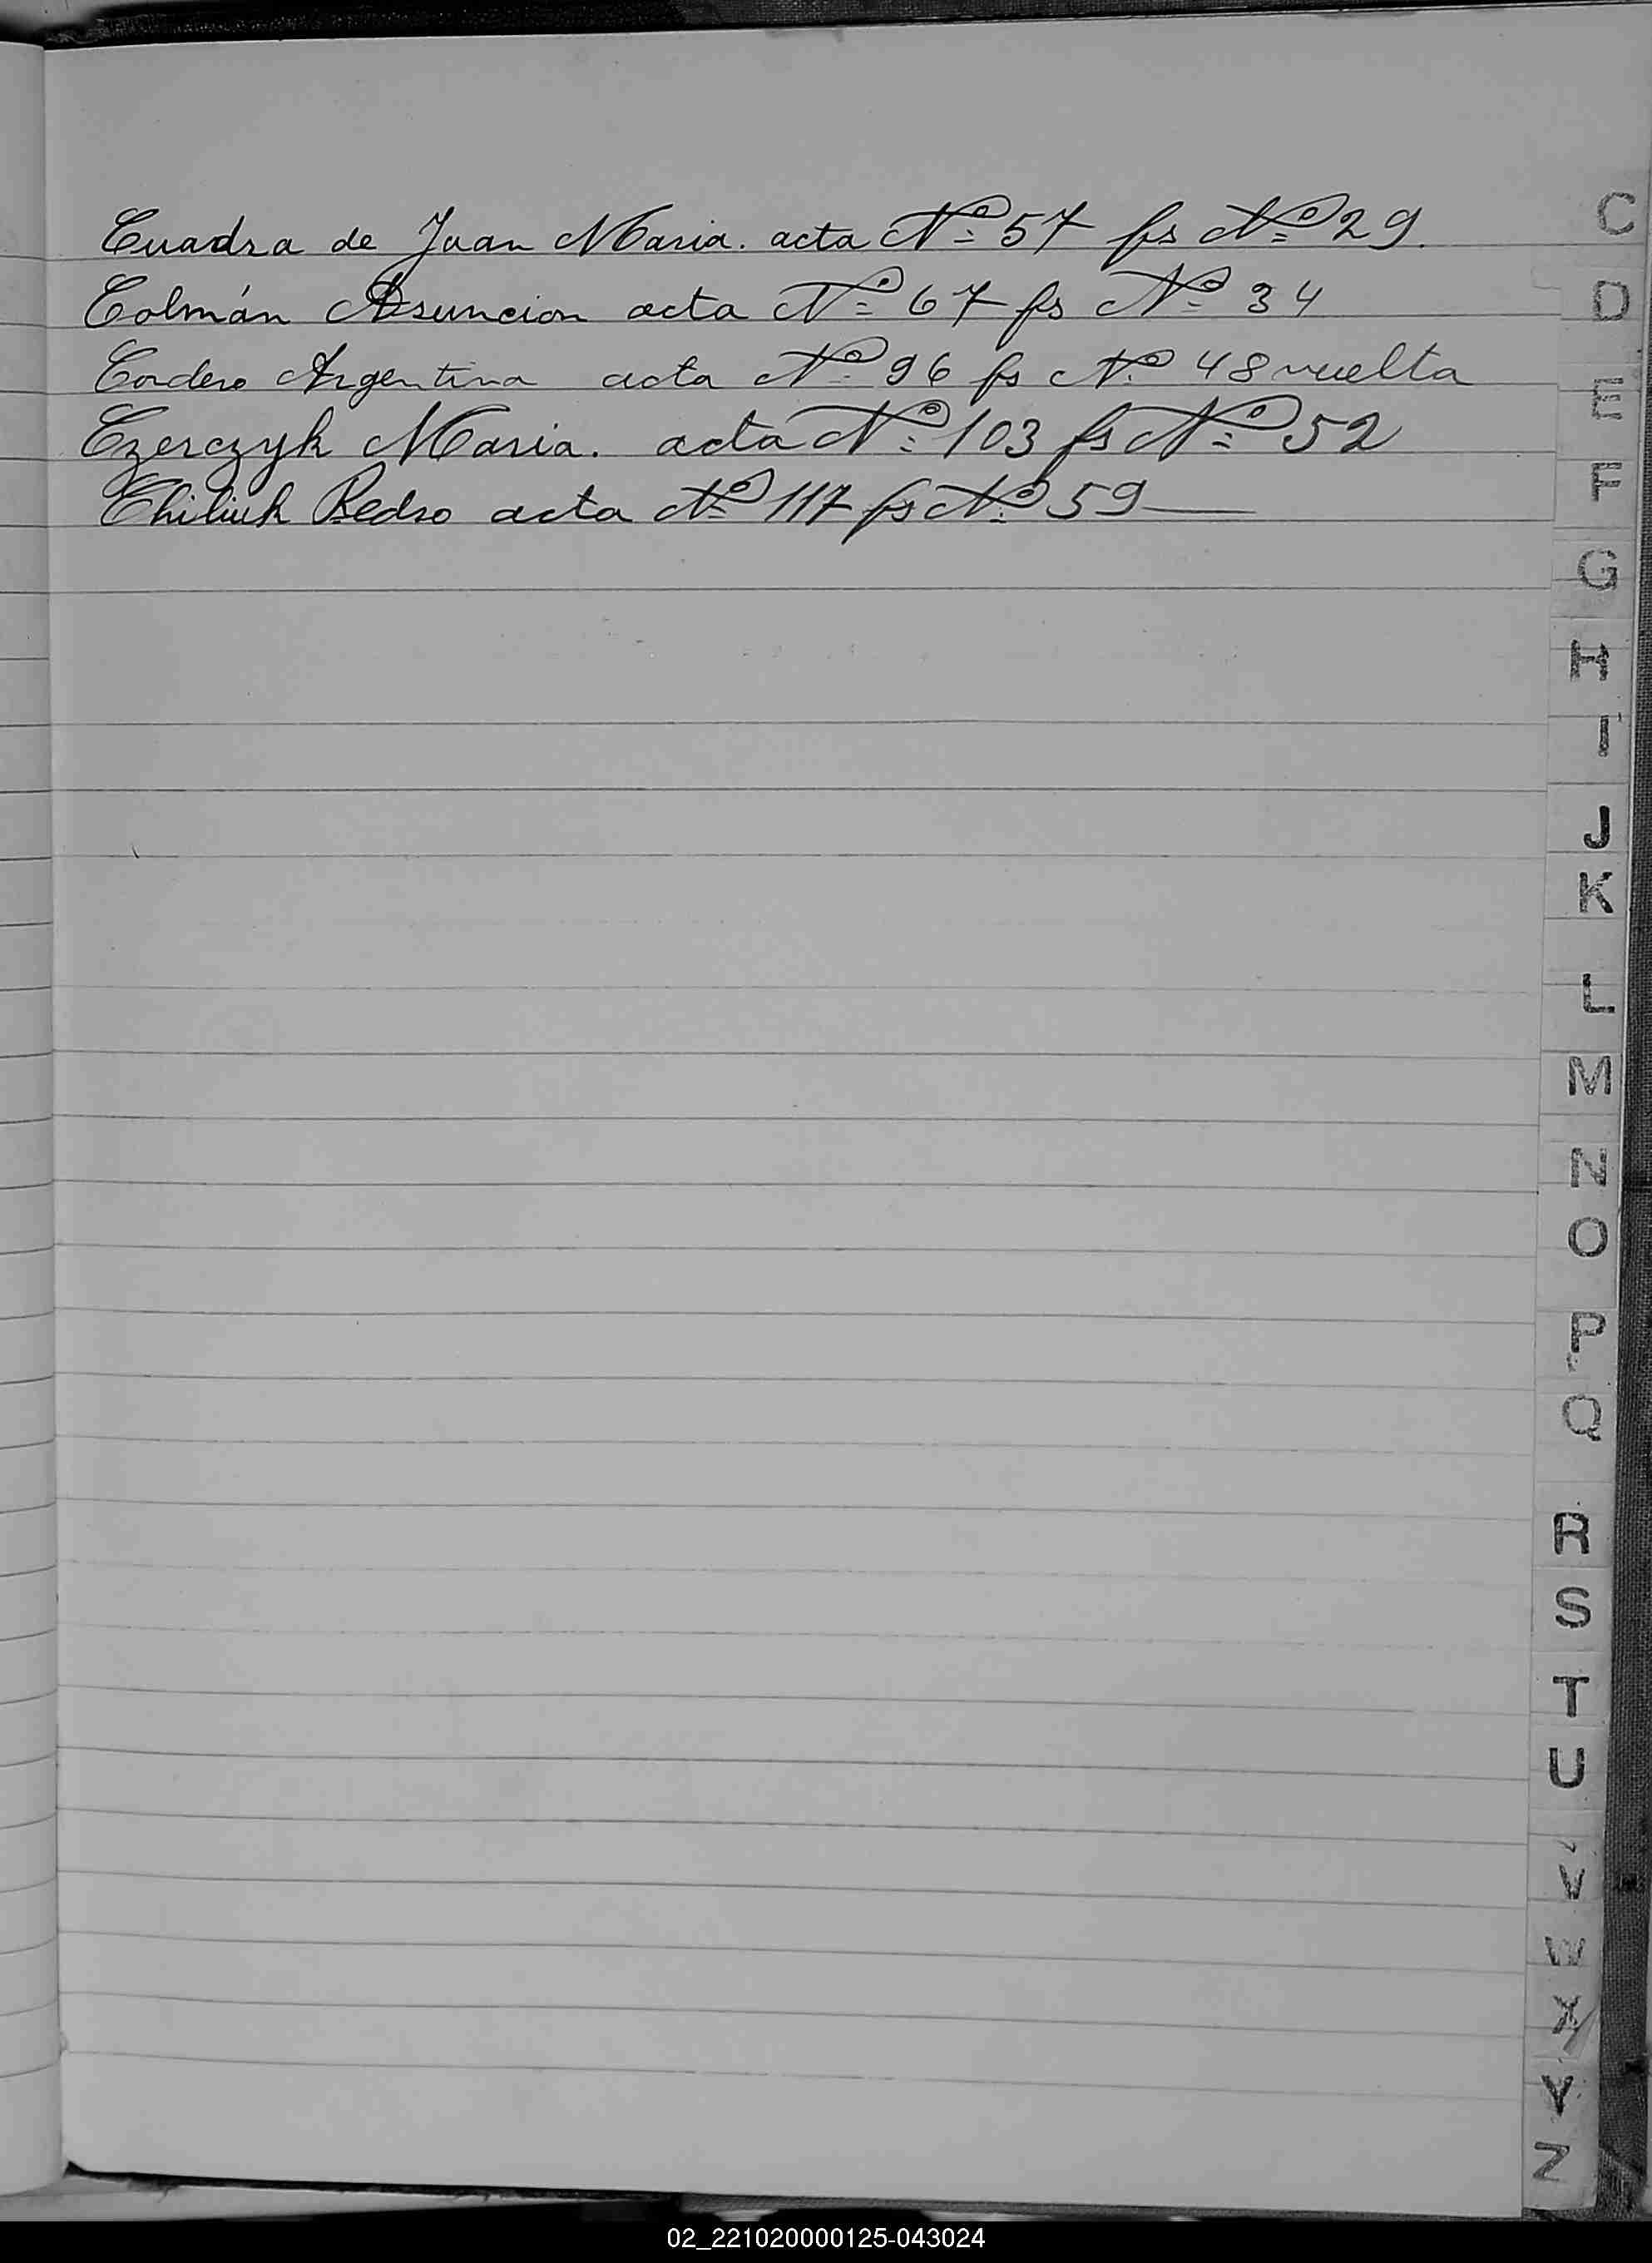 Cuadra de Juan Maria. acta Nº 57 fs Nº 29.
Colmán Asuncion acta Nº 67 fs Nº 34
Cordero Argentina acta Nº 96 fs Nº 48 vuelta
Czerczyk Maria. acta Nº 103 fs Nº 52
Pedro acta Nº 117 fs Nº 59
C
D
E
F
G
H
I
J
K
L
M
N
O
P
Q
R
S
T
U
V
W
X
Y
Z
02_221020000125-043024